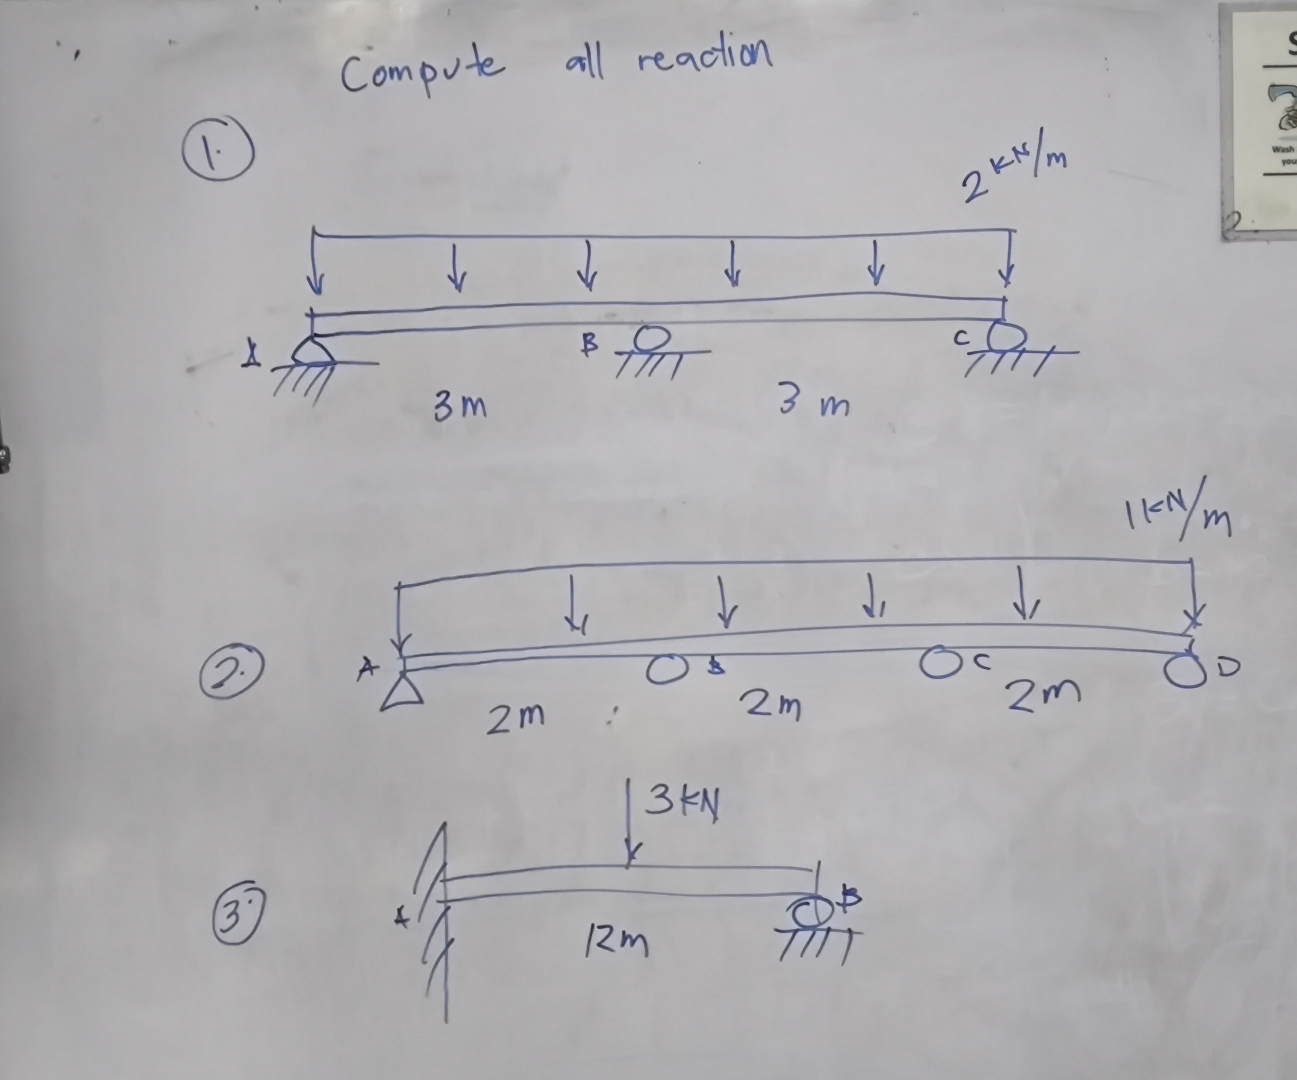 Compute all reaction
1.
2 kN/m
A
B
C
3m
3 m
1 kN/m
2.
A
B
C
D
2m
2m
2m
3 kN
3.
A
B
12m
S
Wash
you
2.